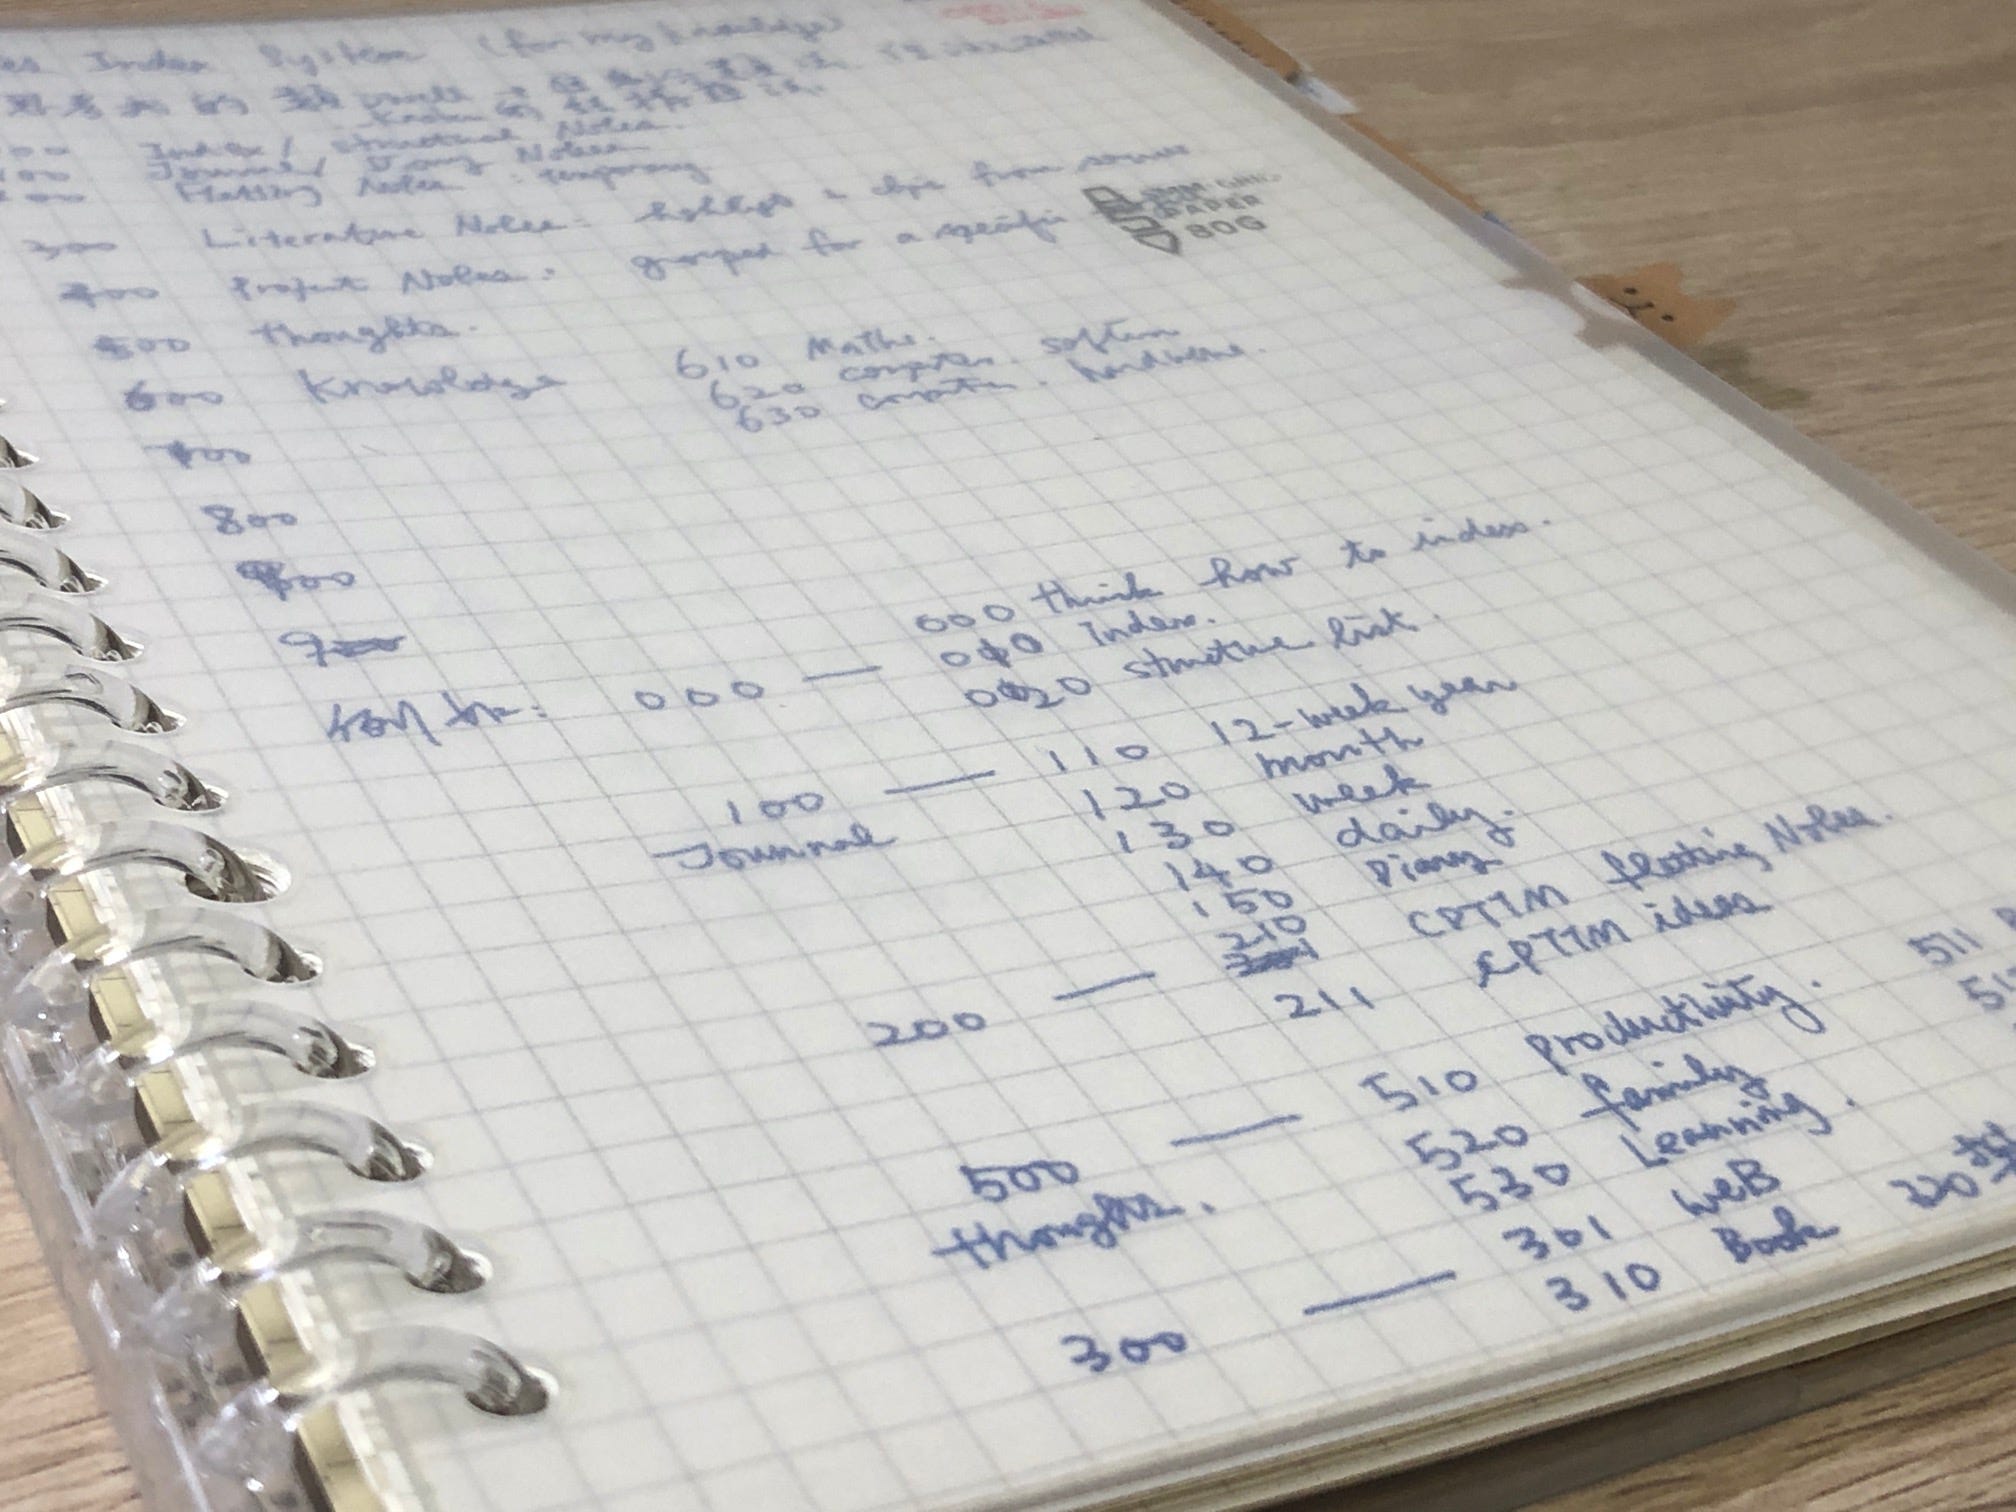 Index System (for my knowledge)
000 Index / structural Notes.
100 Journal / Diary Notes
Floating Notes : temporary
300 Literature Notes: highlight & clips from source
400 Project Notes. grouped for a specific
PAPER
80G
500 thoughts.
600 Knowledge 610 Maths.
620 computer software
630 computer hardware.
700
800
900
000 — 000 think how to index.
010 Index.
020 structure list.
100 — 110 12-week year
Journal 120 month
130 week
140 daily.
150 Diary
200 — 210 CPTTM floating Notes.
211 CPTTM ideas
500 — 510 Productivity. 511
thoughts. 520 family
530 Learning.
300 — 301 WEB
310 Book 320